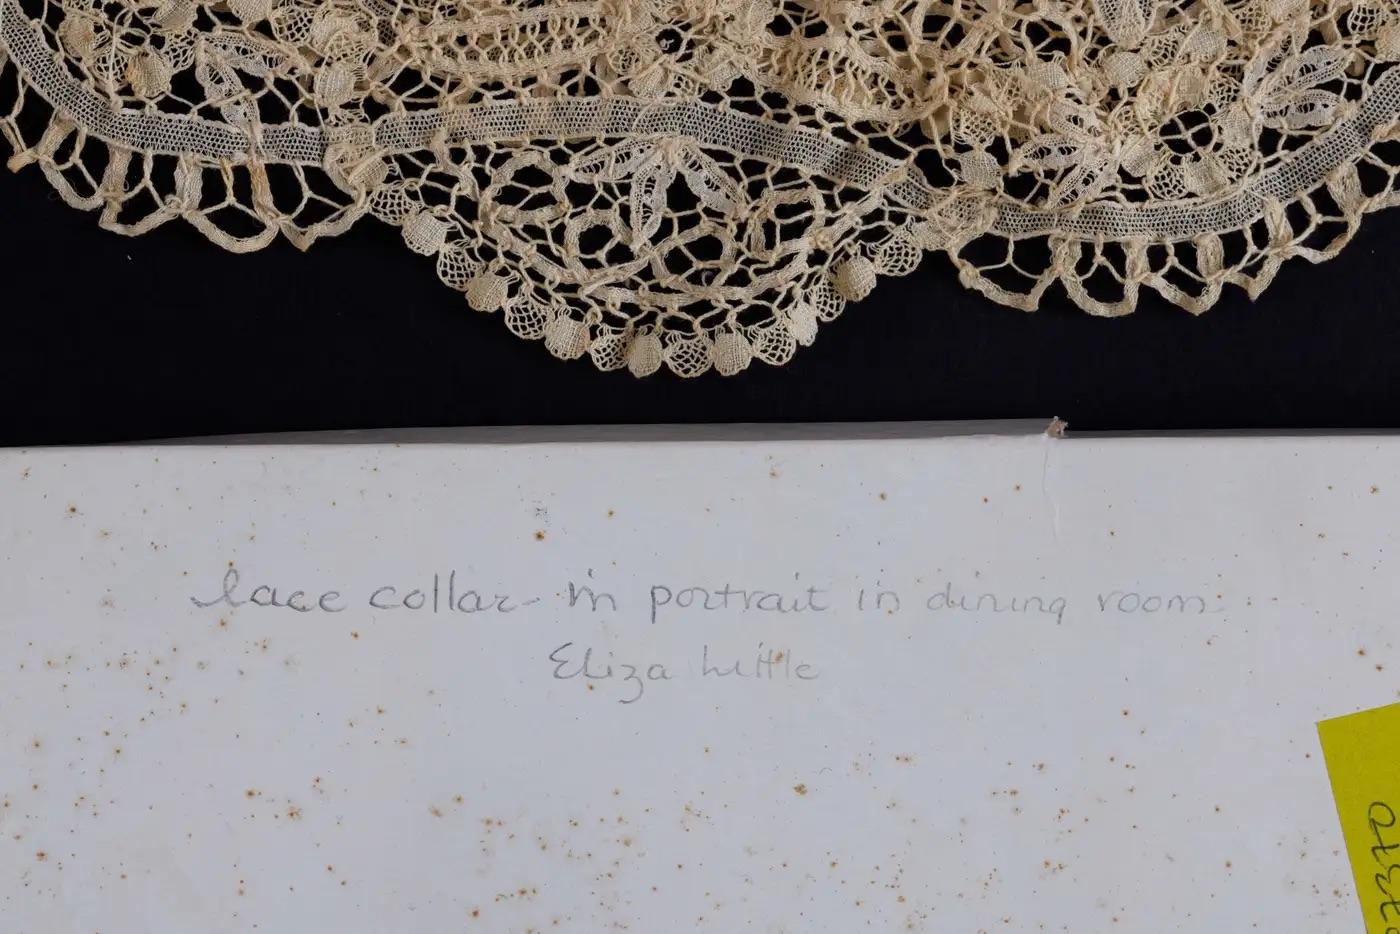 lace collar- in portrait in dining room
Eliza Little